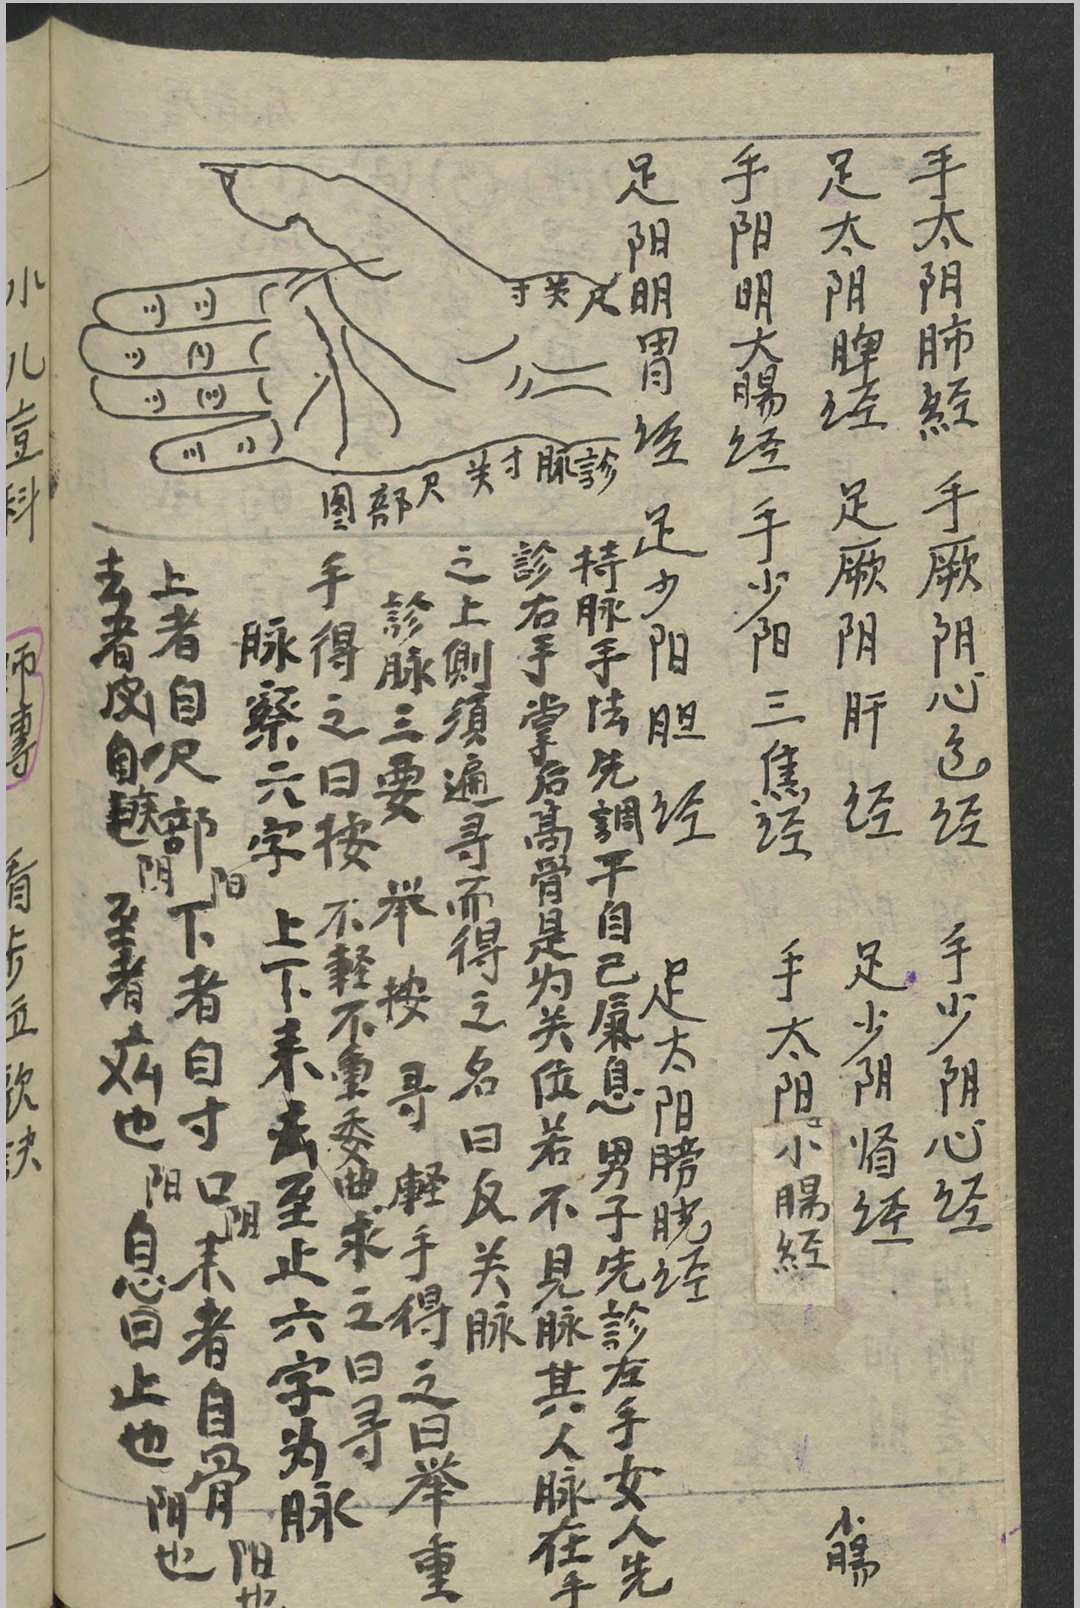 手太阴肺経 手厥阴心包经 手少阴心经
足太阴脾经 足厥阴肝经 足少阴肾经 小腸
手阳明大腸经 手少阳三焦经 手太阳小腸経
足阳明胃经 足少阳胆经 足太阳膀胱经
寸关尺
診脉寸关尺部图
持脉手法先調平自己氣息男子先診左手女人先
診右手掌后高骨是为关位若不見脉其人脉在手
之上側須遍寻而得之名曰反关脉
診脉三要 举按寻 軽手得之曰举重
手得之曰按不軽不重委曲求之曰寻
脉察六字 上下来去至止六字为脉
上者自尺部阳下者自寸口阴来者自骨阳也
去者皮自阴至者病也阳息曰止也阴也
小儿痘科 師專 看步立歌訣